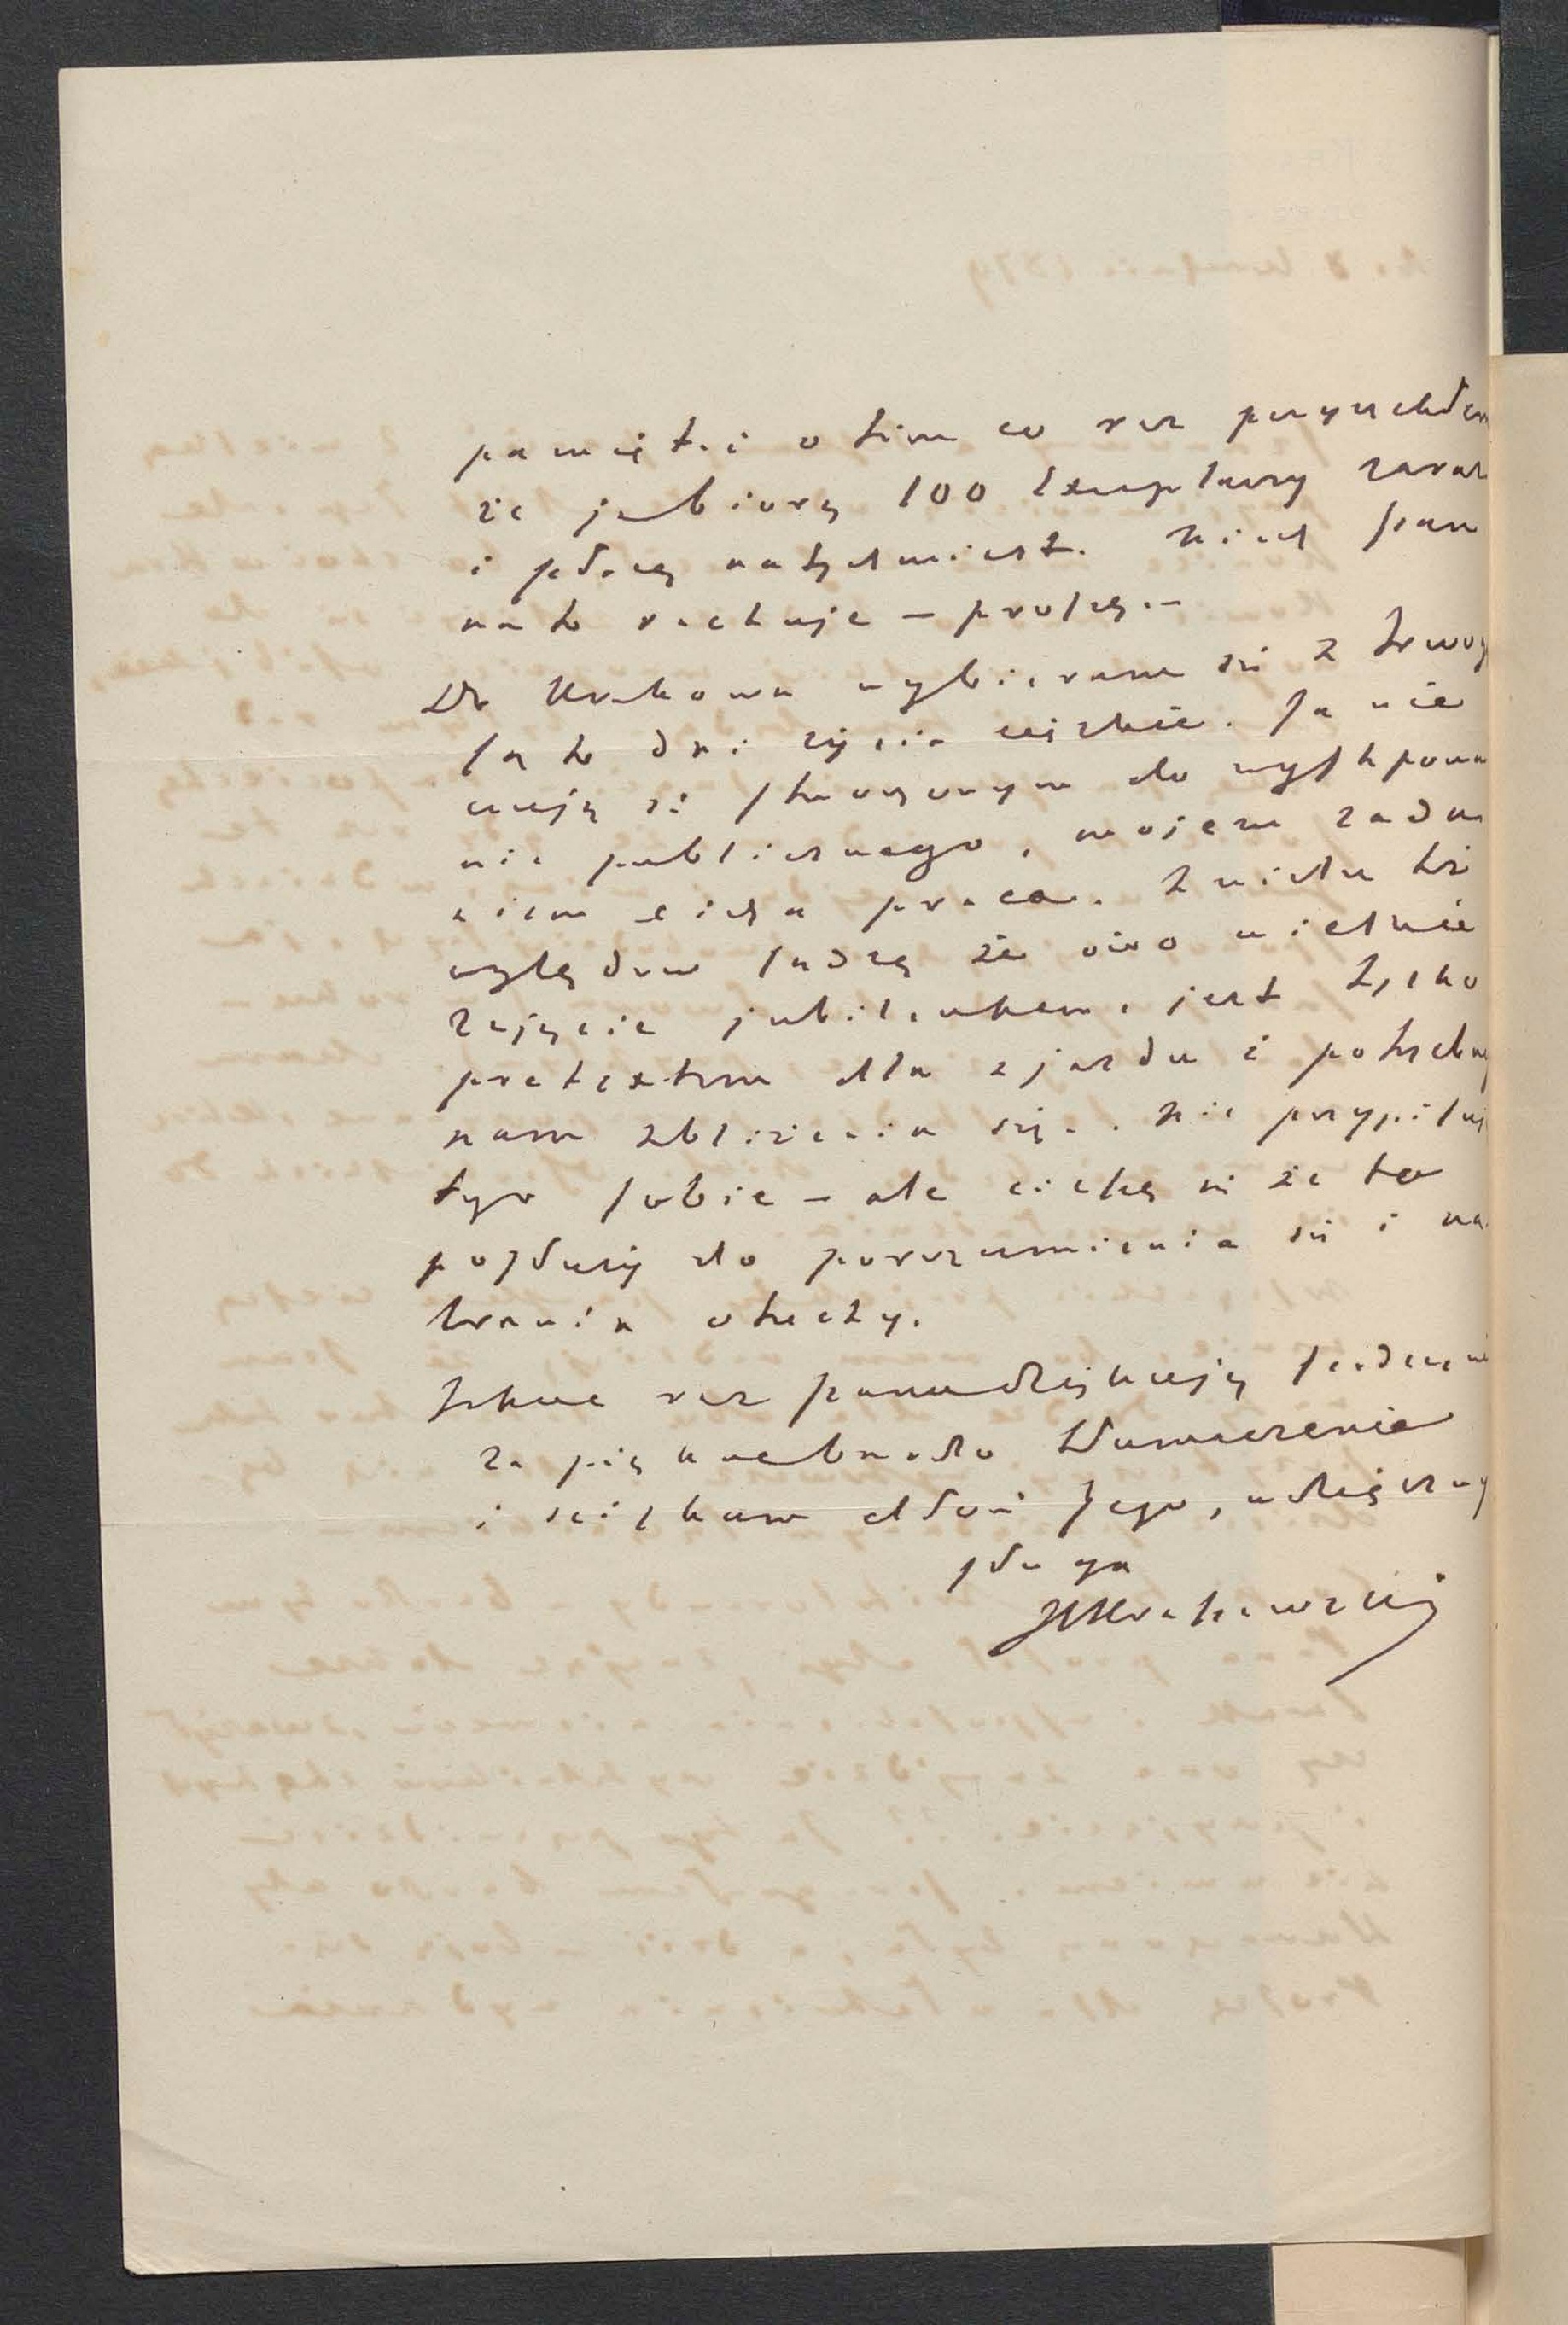 pamięta i o tem co raz przyrzekłem
że ja biorę 100 Exemplarzy zaraz
i płacę natychmiast. Niech Pan
na to rachuje – proszę. –
Do Krakowa wybieram się z trwogą
są to dni życia ciężkie. Ja nie
czuję się stworzonym do występowa
nia publicznego, mojem zada
niem cicha praca. Z wielu też
względów sądzę że owo wielkie
zajęcie jubileuszem, jest tylko
pretextem dla zjazdu i potrzebnego
nam zbliżenia się. Nie przypisuję
tego sobie – ale cieszę się że to
posłuży do porozumienia się i na
brania otuchy.
Jeszcze raz Panu dziękuję serdecznie
za piękne bardzo tłumaczenie
i ściskam dłoń Jego, wdzięczny
sługa
JIKraszewski